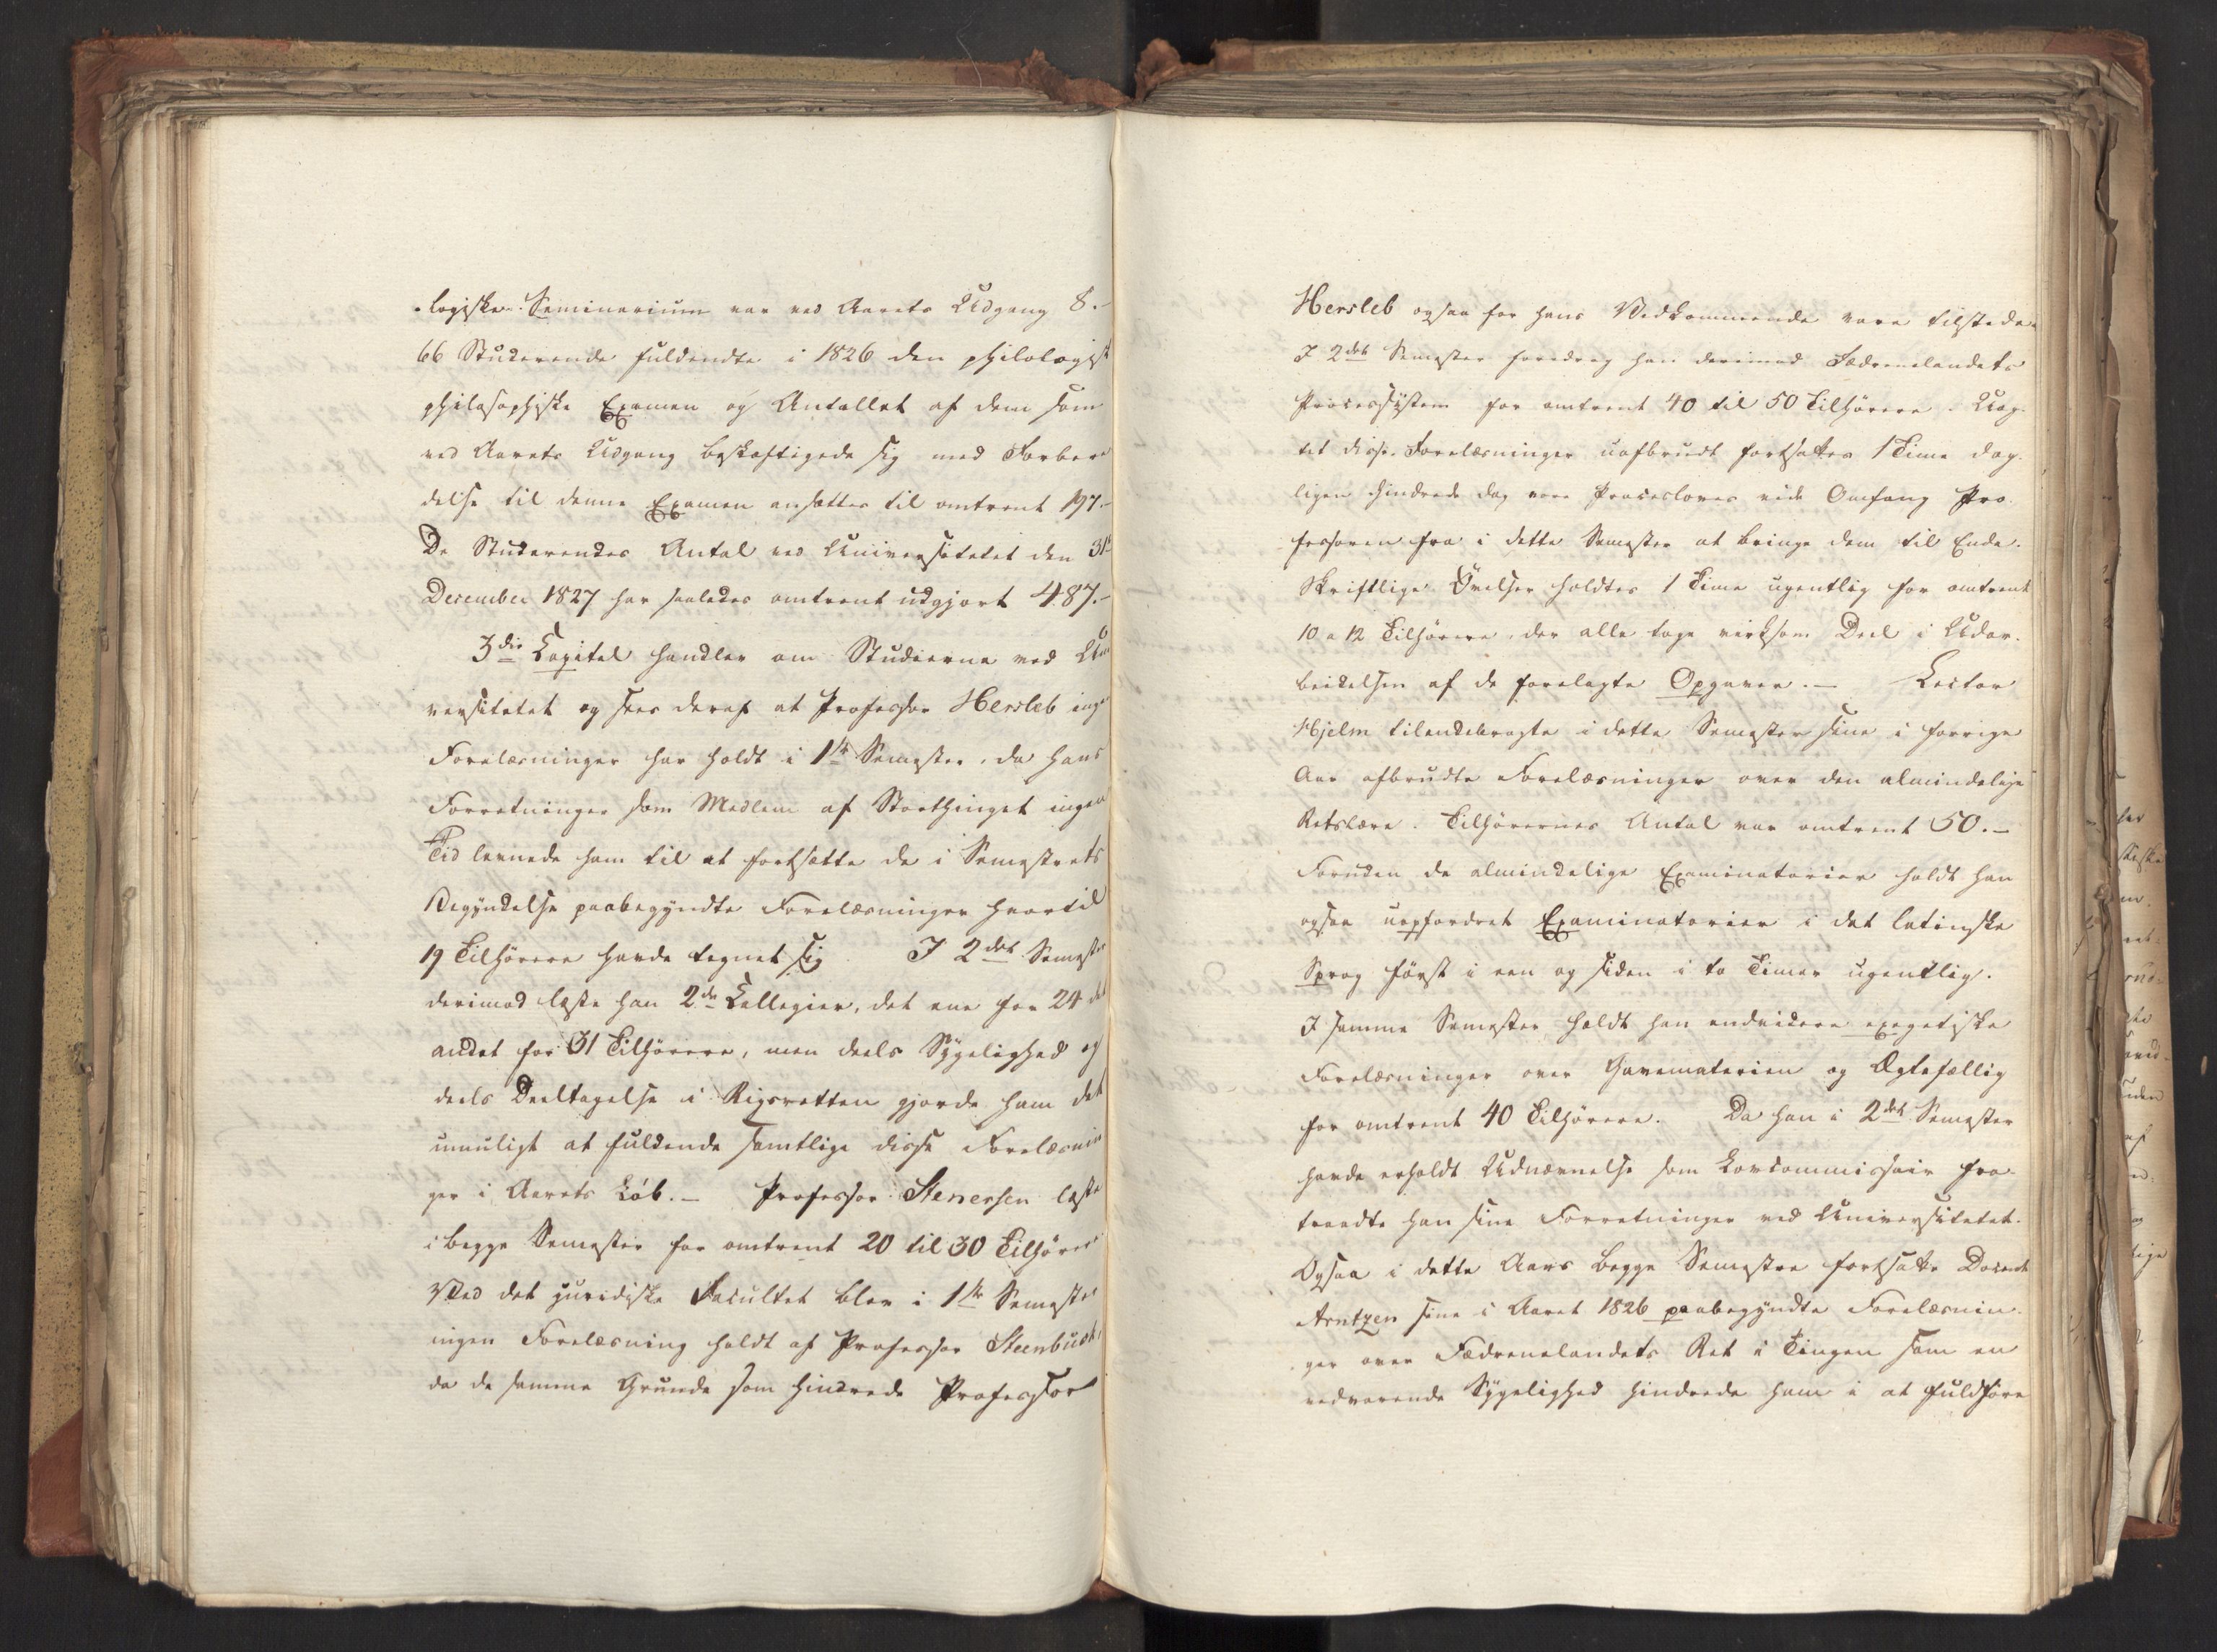 -logiske Seminarium var ved Aarets Udgang 8.-
66 Studerende fuldendte i 1826 den philologisk
philosophiske Examen og Antallet af dem som
ved Aarets Udgang beskæftigede sig med Forbere
delse til denne Examen ansættes til omtrent 197.-
De Studerendes Antal ved Universitetet den 31te
December 1827 har saaledes omtrent udgjort 487.-
3die Capitel handler om Studierne ved Uni
versitetet og sees deraf at Professor Hersleb ingen
Forelæsninger har holdt i 1ste Semester, da hans
Forretninger som Medlem af Storthinget ingen
Tid levnede ham til at fortsætte de i Semestrets
Begyndelse paabegyndte Forelæsninger hvortil
19 Tilhørere havde tegnet sig. I 2det Semester
derimod læste han 2de Collegier, det ene for 24 det
andet for 31 Tilhørere, men deels Sygelighed og
deels Deeltagelse i Rigsretten gjorde ham det
umuligt at fuldende samtlige disse Forelæsnin
ger i Aarets Løb.- Professor Stenersen læste
i begge Semester for omtrent 20 til 30 Tilhørere
Ved det juridiske Facultet blev i 1ste Semester
ingen Forelæsning holdt af Professor Steenbuch,
da de samme Grunde som hindrede Professor
Hersleb ogsaa for hans Vedkommende vare tilstede.
I 2det Semester foredrog han derimod Fædrenelandets
Processystem for omtrent 40 til 50 Tilhørere. Uag-
tet disse Forelæsninger uafbrudt fortsattes 1 Time dag-
ligen hindrede dog vore Procesloves vide Omfang Pro-
fessoren fra i dette Semester at bringe dem til Ende.
Skriftlige Øvelser holdtes 1 Time ugentlig for omtrent
10 a 12 Tilhørere, der alle toge virksom Deel i Udar-
beidelsen af de forelagte Opgaver.- Lector
Hjelm tilendebragte i dette Semester sine i forrige
Aar afbrudte Forelæsninger over den almindelige
Retslære. Tilhørernes Antal var omtrent 50.-
Foruden de almindelige Examinatorier holdt han
ogsaa uopfordret Examinatorier i det latinske
Sprog først i een og siden i to Timer ugentlig.
I samme Semester holdt han endvidere exegetiske
Forelæsninger over Gavematerien og Ægtefællig
for omtrent 40 Tilhørere. Da han i 2det Semester
havde erholdt Udnævnelse som Lovcommissair fra-
traadte han sine Forretninger ved Universitetet.
Ogsaa i dette Aars begge Semestre fortsatte Docent
Arntzen sine i Aaret 1826 paabegyndte Forelæsnin-
ger over Fædrenelandets Ret i Tingen som en
vedvarende Sygelighed hindrede ham i at fuldføre